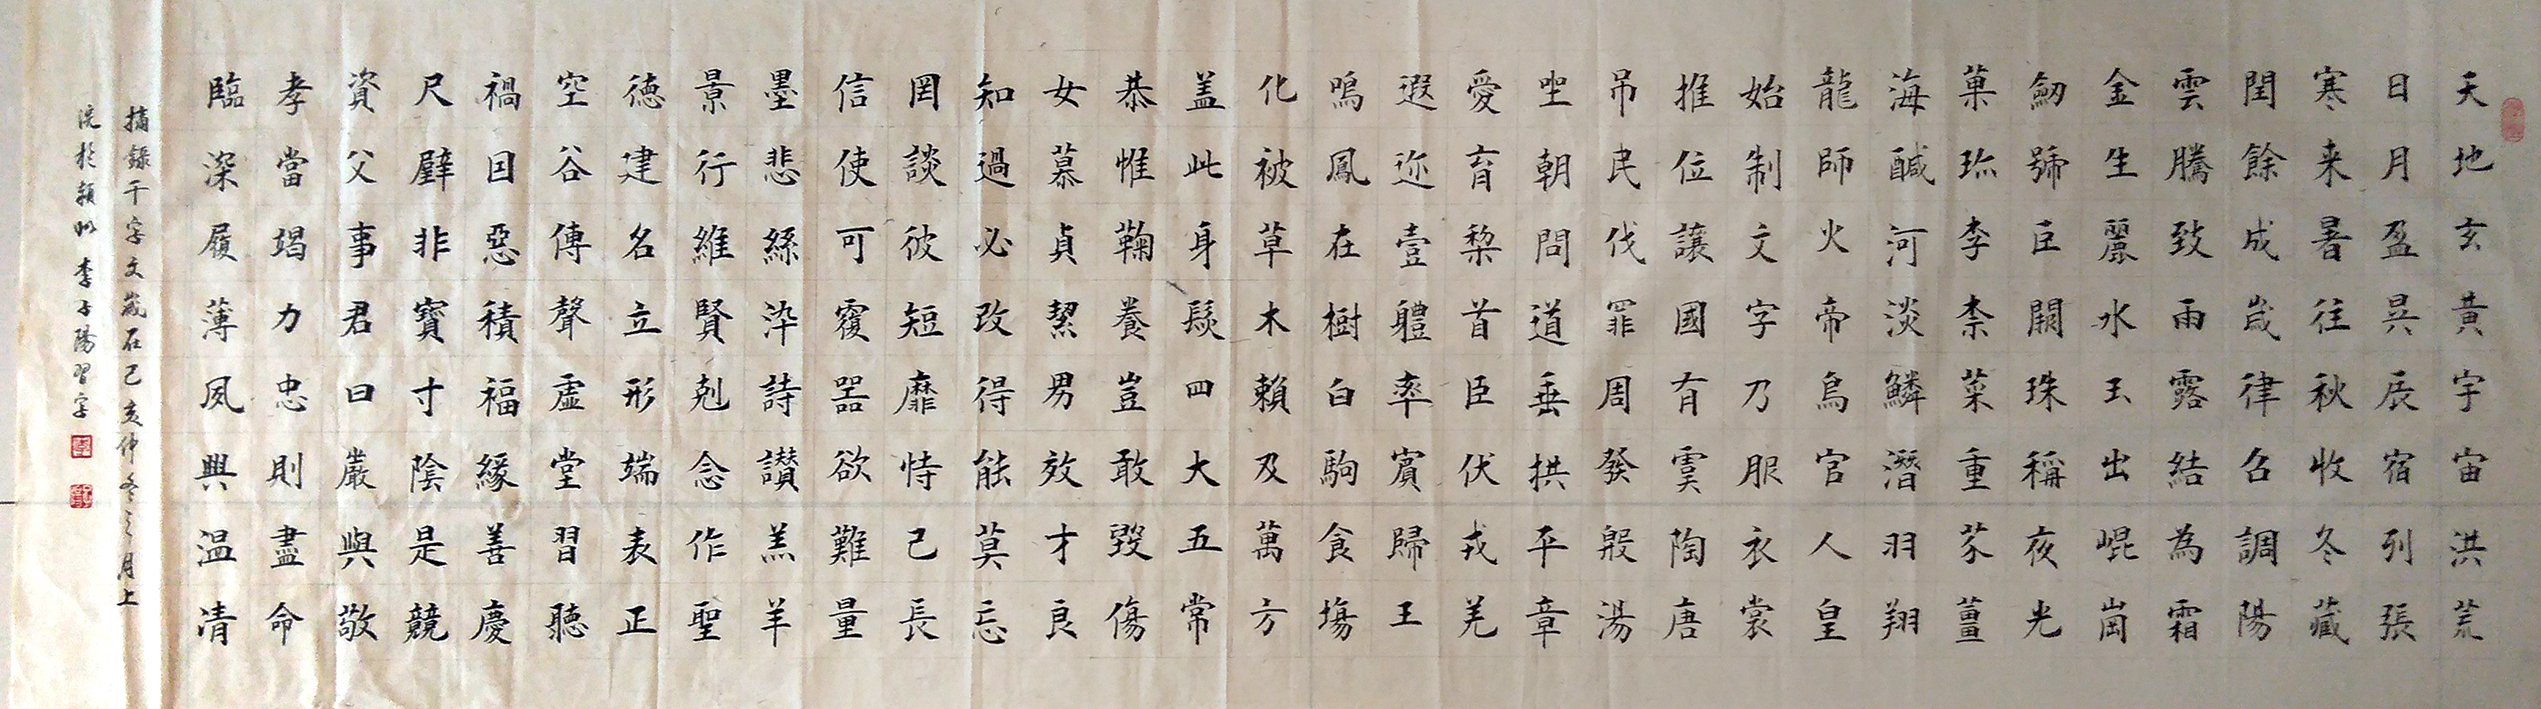 天地玄黄宇宙洪荒
日月盈昃辰宿列張
寒来暑往秋收冬藏
閏餘成歲律召調陽
雲騰致雨露結為霜
金生麗水玉出崐崗
劒號巨闕珠稱夜光
菓珎李柰菜重芥薑
海醎河淡鱗潛羽翔
龍師火帝鳥官人皇
始制文字乃服衣裳
推位讓國有虞陶唐
吊民伐罪周發殷湯
坐朝問道垂拱平章
愛育黎首臣伏戎羌
遐迩壹體率賓歸王
鳴鳳在樹白駒食場
化被草木賴及萬方
盖此身髮四大五常
恭惟鞠養豈敢毀傷
女慕貞絜男效才良
知過必改得能莫忘
罔談彼短靡恃己長
信使可覆器欲難量
墨悲絲染詩讃羔羊
景行維賢剋念作聖
德建名立形端表正
空谷傳聲虛堂習聽
禍因惡積福緣善慶
尺璧非寶寸陰是競
資父事君曰嚴與敬
孝當竭力忠則盡命
臨深履薄夙興温凊
摘錄千字文 己亥仲冬之月上
浣於 李子陽習字